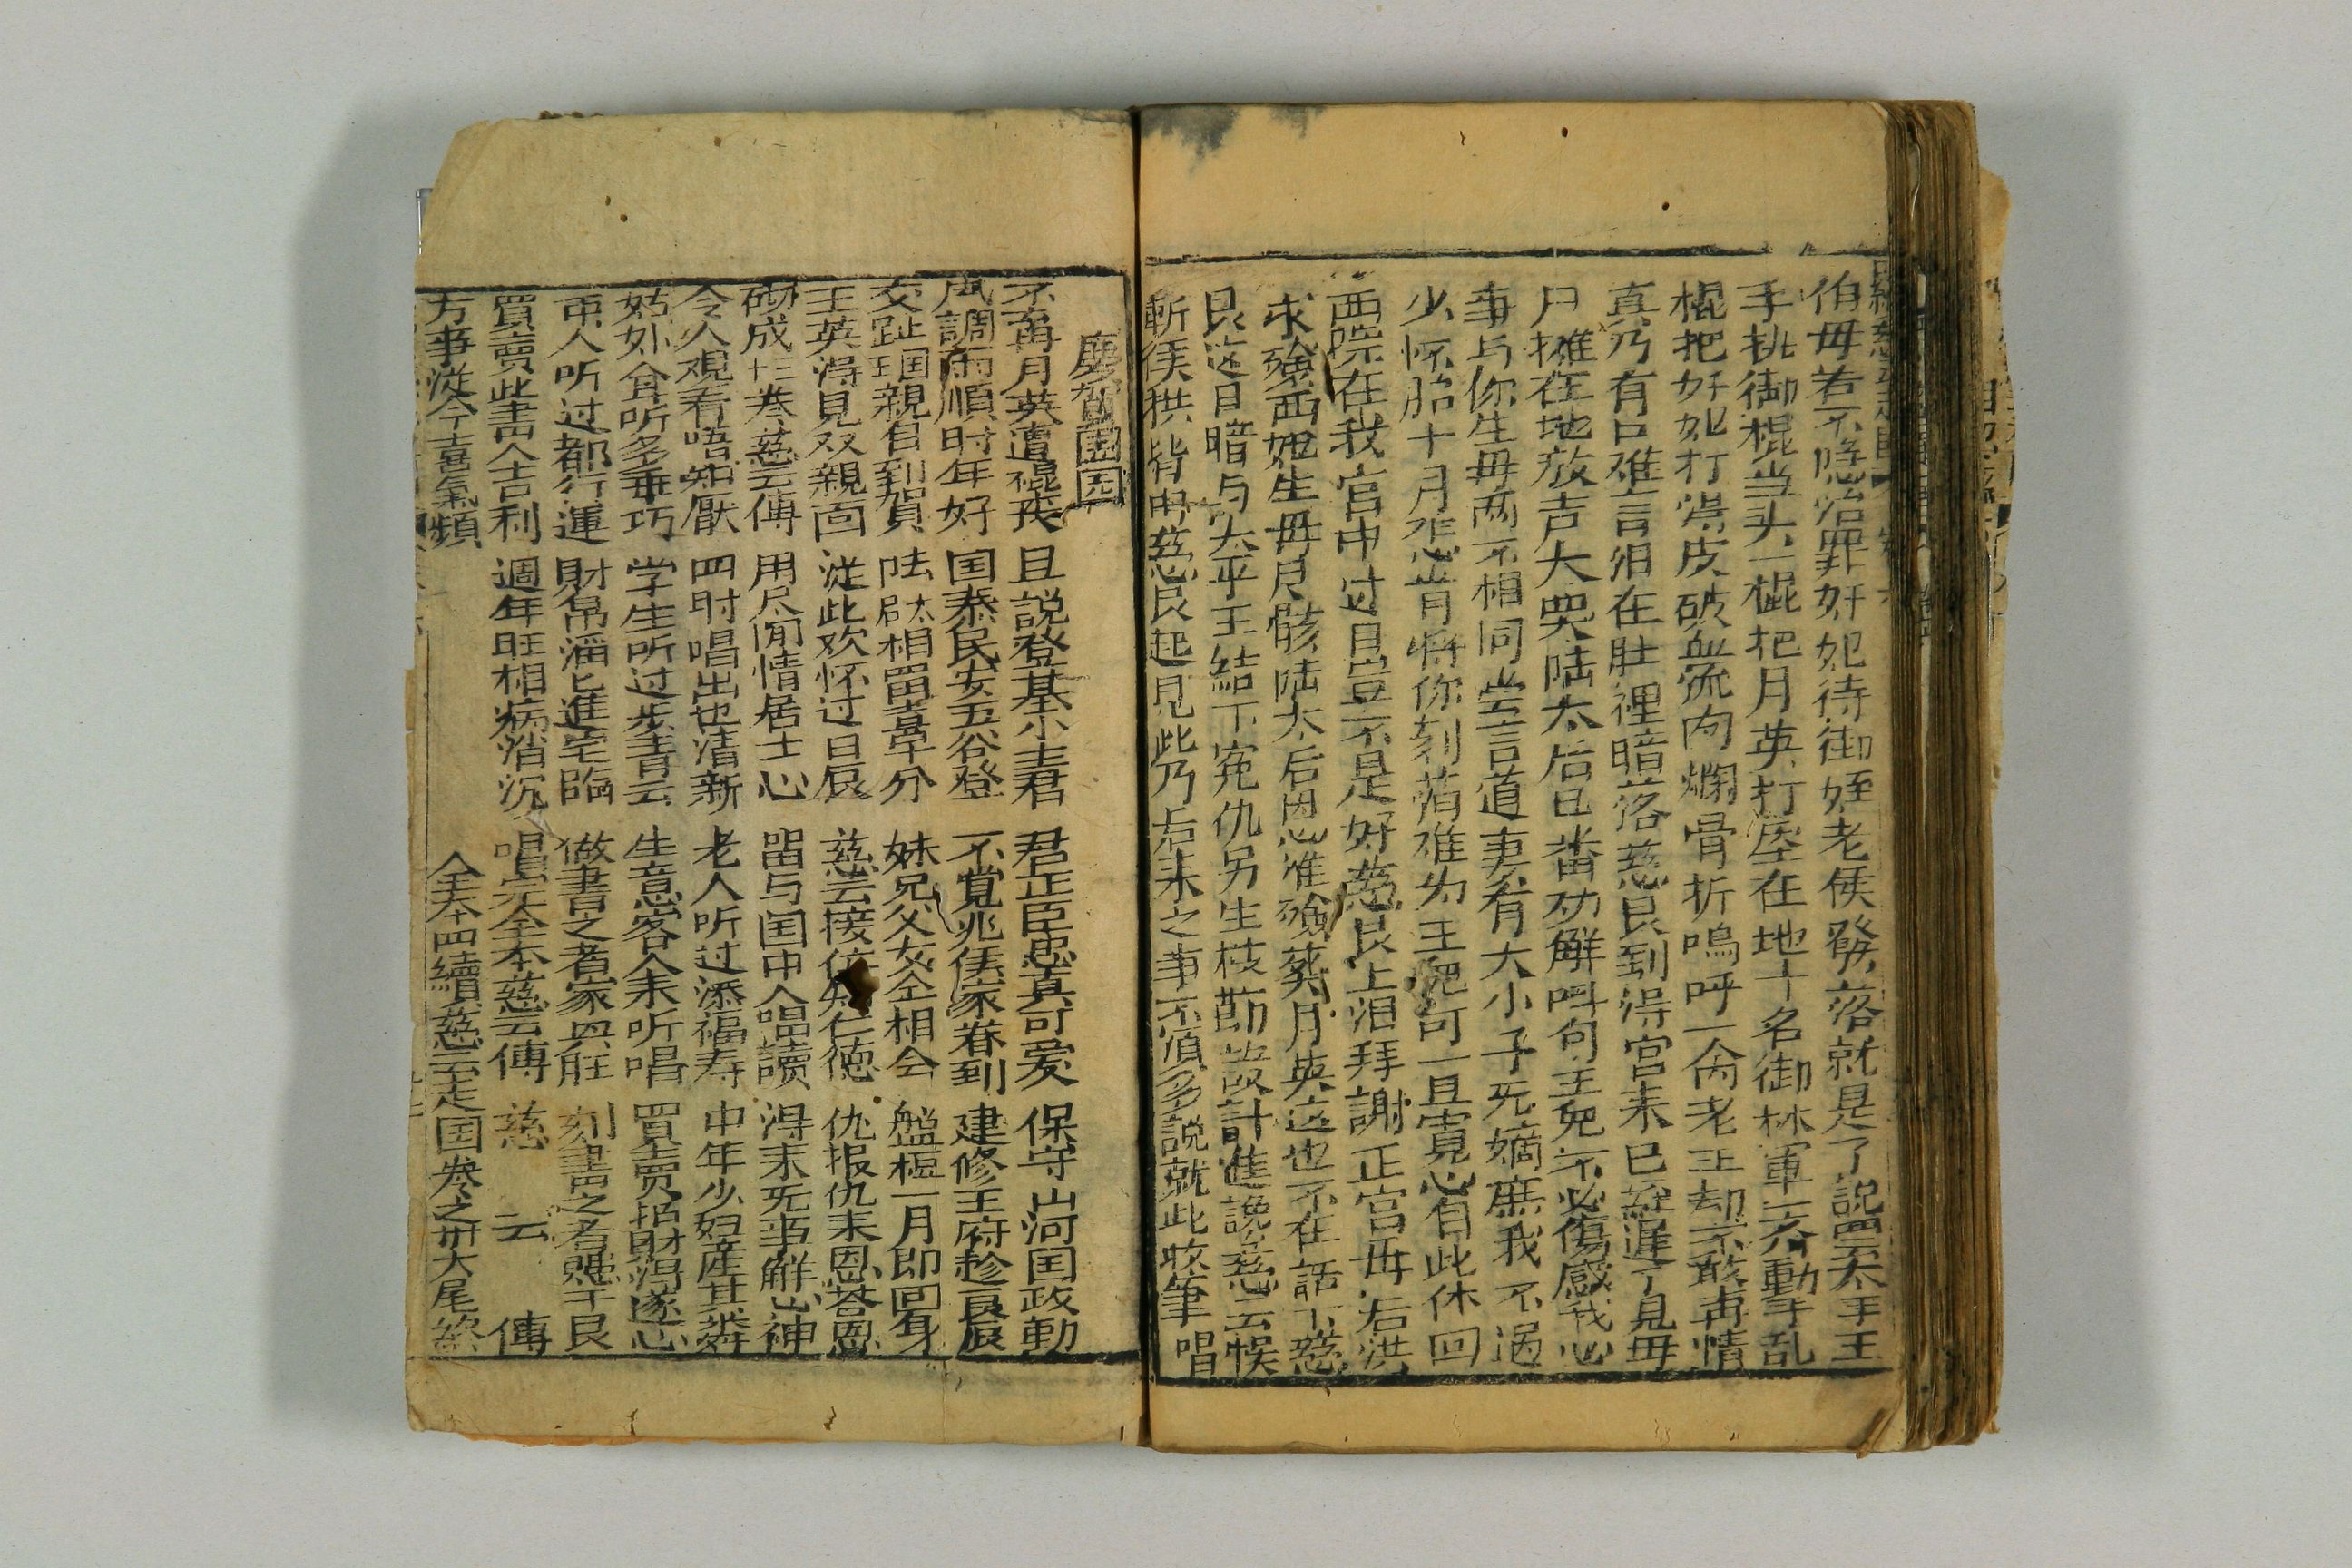 伯母若不隐治罪奸妃待御姪老侯發落就是了説罢太平王
手执御棍当头一棍把月英打坐在地十名御林軍一齐動手乱
棍把奸妃打得皮破血流肉爛骨折嗚呼一命老王却不敢再情
真乃有口难言泪在肚裡暗落慈良到得宮来已经遲了見毋
尸摊在地放声大哭陆太后已畨劝解叫句王児不必傷感我心
事与你生毋两不相同尝言道妻有大小子无嫡庶我不过
少怀胎十月悲肯将你刻薄难为王児可一旦寛心自此休回
西踪在我宮中过日豈不是好慈良上泪拜謝正宮毋后洪
求殮西妃生毋尸骸陆太后恩准殮葬月英这也不在話下慈
良这日暗与太平王結下寃仇另生枝莭設計進讒慈云悮
斬侯拱背申慈良起見此乃后来之事不須多説就此收筆唱
慶賀团圆
不言月英遭棍丧 且説登基小圭君 君正臣忠真可爱 保守山河国政勤
風調雨順时年好 国泰民安五谷登 不覚兆侯家眷到 建修王府趁良辰
交趾国親自到賀 陆后太相留喜平分 妹兄父女仝相会 盤桓一月即回身
王英得見双親面 従此欢怀过日辰 慈云接位知仁德 仇报仇来恩荅恩
砌成卄卷慈云傳 用尽闲情居士心 留与国中人唱讀 得来无事解心神
令人观看唔知厭 四时唱出也清新 老人听过添福寿 中年少妇產其麟
姑外耸听多乖巧 学生听过步青云 生意客人来听唱 買卖招財得遂心
再人听过都行運 財帛滔匕進宅臨 做書之者家具旺 刻書之者賺千艮
買賣此書人吉利 週年旺相病消沉 唱完全本慈云傳 慈云傳
方事從今喜氣頻
全本四續慈云走国卷之卅大尾終